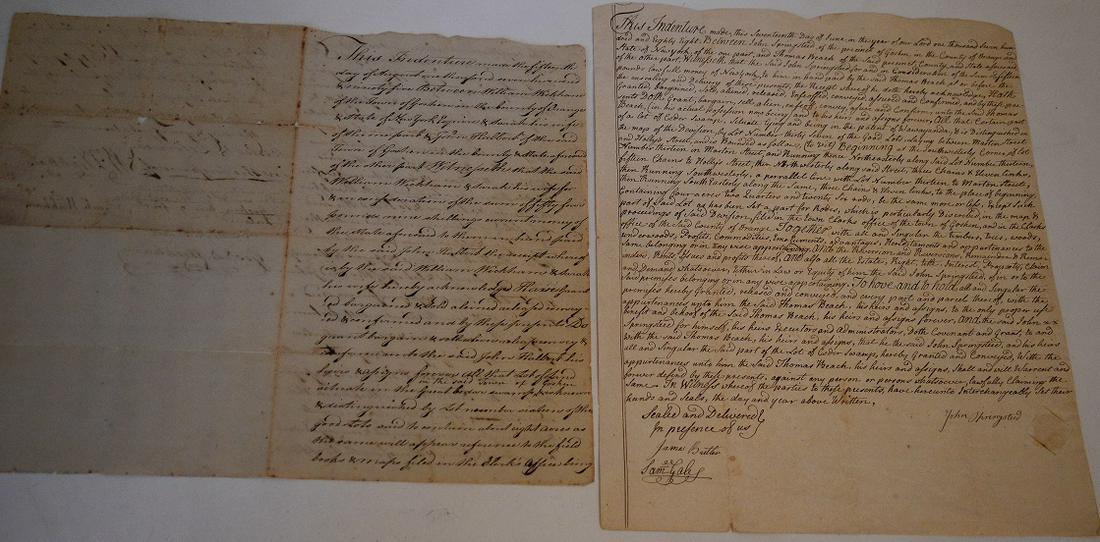 This Indenture made the fifteenth
day of August in one thousand seven hundred
& ninety five Between William Wickham
of the Town of Goshen in the County of Orange
& State of New York Esquire & Sarah his wife
of the one part & John Hulbert of the said
Town of Goshen in the County & State aforesaid
of the other part Witnesseth that the said
William Wickham & Sarah his wife for
& in consideration of the sum of fifty five
pounds nine shillings current money of
the State aforesaid to them in hand paid
by the said John Hulbert the receipt whereof
they the said William Wickham & Sarah
his wife hereby acknowledge Have
ed bargained & sold aliened released convey
ed & confirmed and by these presents Do
grant bargain & sell alien release convey &
confirm unto the said John Hulbert his
heirs & assigns forever All that Lot of Land
in the said Town of Goshen
situate in the great Ceder swamp known
& distinguished by Lot number sixteen of the
good Lots said to contain about eight acres as
the same will appear reference to the field
books & maps filed in the Clerk's Office being
This Indenture made, this Seventeenth Day of June, in the year of our Lord one thousand Seven hun
dred and Eighty Eight. Between John Springsteed, of the precinct of Goshen in the County of Orange and
State of Newyork, of the one part, and Thomas Beach of the Said precinct, County and State aforesaid
of the other part, Witnesseth that the Said John Springsteed, for and in Consideration of the Sum of fifteen
pounds lawfull money of Newyork, to him in hand paid by the Said Thomas Beach, at or before the
the ensealing and Delivery of these presents, the Receipt whereof he doth hereby acknowledge, Hath
Granted, bargained, Sold, aliened, released, Enfeoffed, conveyed, assured and Confirmed, and by these pre
sents Doth, Grant, bargain, sell, alien, release, convey, assure, and Confirm, unto the Said Thomas
Beach, (in his actual possession now being) and to his heirs and assigns forever, All that Certain part
of a Lot of Ceder Swamp, Situate, lying and being in the patent of Wawayanda, & is Distinguished in
the map of the Devision, by Lot Number thirty Seven of the Good Lots, Laying between Marton Street
and Hollys Street, and is Bounded as follows, (to wit) Beginning at the Southwesterly Corner of Lot
Number thirteen on Marton Street, and Running thence Northeasterly, along Said Lot Number thirteen,
fifteen Chains to Hollys Street, then Northwesterly, along said Street, three Chains & Seven links,
then Running Southwesterly, a parrallel Line with Lot Number thirteen to Marton Street,
then Running South Easterly along the Same, three Chains & Seven links, to the place of beginning
Containing four acres two Quarters and twenty Six rods, be the same more or less, Except Such
part of Said Lot as has been Set a part for Rodes, which is perticularly Discribed, in the map, &
proceedings of Said Devision, filed in the town Clarks office of the town of Goshen, and in the Clarks
office of the Said County of Orange Together with all and Singular the timber, trees, woods,
underwoods, Profits, Commodities, Emoluments, advantages, Hereditaments and appurtenances to the
Same belonging or in any wise appertaining, And the Reversion and Reversions, Remainder & Rema
inders, Rents Issues and profits thereof, And also all the Estate, Right, title, Interest, Property, Claim
and Demand whatsoever, Either in Law or Equity of him the Said John Springsteed, of in or to the
Said premises belonging or in any wise appertaining. To have and to hold, all and Singular the
premises hereby Granted, released and conveyed, and every part and parcel thereof, with the
appurtenances unto him the Said Thomas Beach, his heirs and assigns, to the only proper use
benefit and behoof of the Said Thomas Beach, his heirs and assigns forever. And the said John
Springsteed for himself, his heirs Executors and administrators, Doth Covenant and Grant, to and
with the said Thomas Beach, his heirs and assigns, that he the said John Springsteed, and his heirs
all and Singular the Said part of the Lot of Ceder Swamp, hereby Granted and Conveyed, With the
appurtenances unto him the Said Thomas Beach, his heirs and assigns, Shall and will Warrent and
forever Defend by these presents, against any person or persons whatsoever, lawfully Claiming the
Same. In Witness whereof the parties to these presents, have hereunto Interchangeably Set their
hands and Seals, the day and year above Written.
Sealed and Delivered
In presence of us
John Springsted
James Butler
Saml Gale